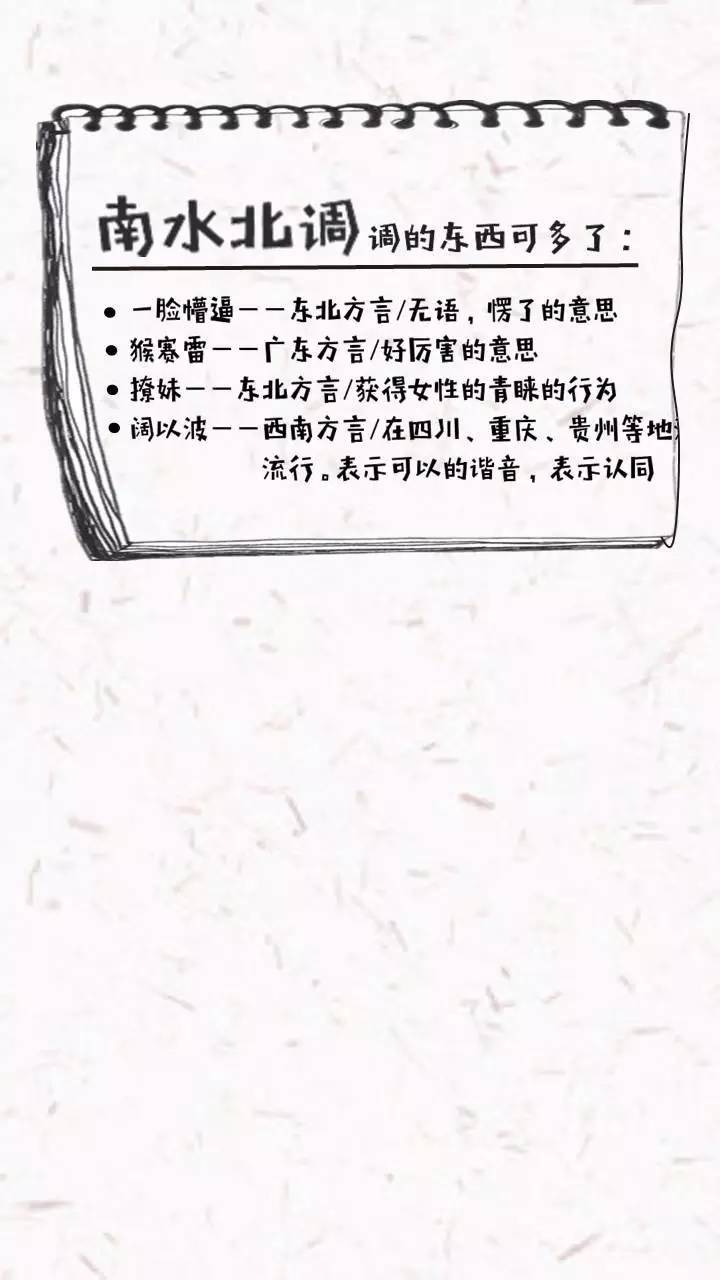 南水北调 调的东西可多了：
• 一脸懵逼——东北方言/无语，愣了的意思
• 猴赛雷——广东方言/好厉害的意思
• 撩妹——东北方言/获得女性的青睐的行为
• 阔以波——西南方言/在四川、重庆、贵州等地
流行。表示可以的谐音，表示认同